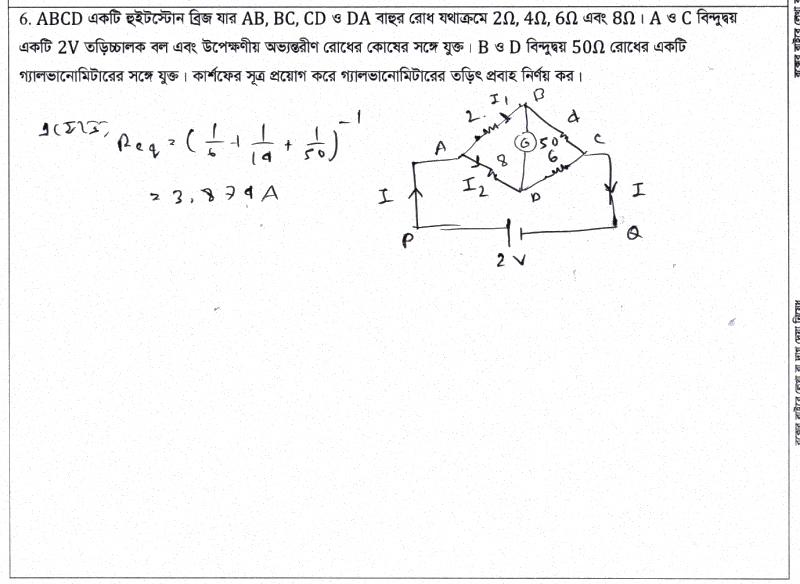 6. ABCD একটি হুইটস্টোন ব্রিজ যার AB, BC, CD ও DA বাহুর রোধ যথাক্রমে 2Ω, 4Ω, 6Ω এবং 8Ω। A ও C বিন্দুদ্বয়
একটি 2V তড়িচ্চালক বল এবং উপেক্ষণীয় অভ্যন্তরীণ রোধের কোষের সঙ্গে যুক্ত। B ও D বিন্দুদ্বয় 50Ω রোধের একটি
গ্যালভানোমিটারের সঙ্গে যুক্ত। কার্শফের সূত্র প্রয়োগ করে গ্যালভানোমিটারের তড়িৎ প্রবাহ নির্ণয় কর।
Req = (1/6 + 1/14 + 1/50)^-1
= 3.874 A
I1 B
2 4
A G 50 C
8 6
I2 D
I I
P Q
2 V